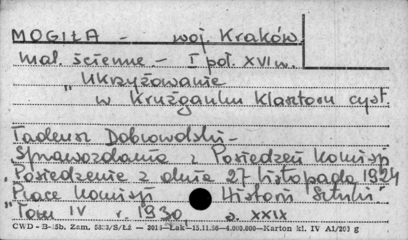 MOGIŁA - woj. Kraków
mal. ścienne - I poł. XVI w.
"Ukrzyżowanie
w Krużganku klasztoru cyst.
Tadeusz Dobrowolski -
Sprawozdania z Posiedzeń Komisji
Posiedzenie z dnia 27 listopada 1924
Prace Komisji Historii Sztuki"
Tom IV r. 1930, s. XXIX
CWD - B-35b. Zam. /S/Łż - Łak- 15.11.56 - 4.000.000 - Karton kl. IV A1/200 g